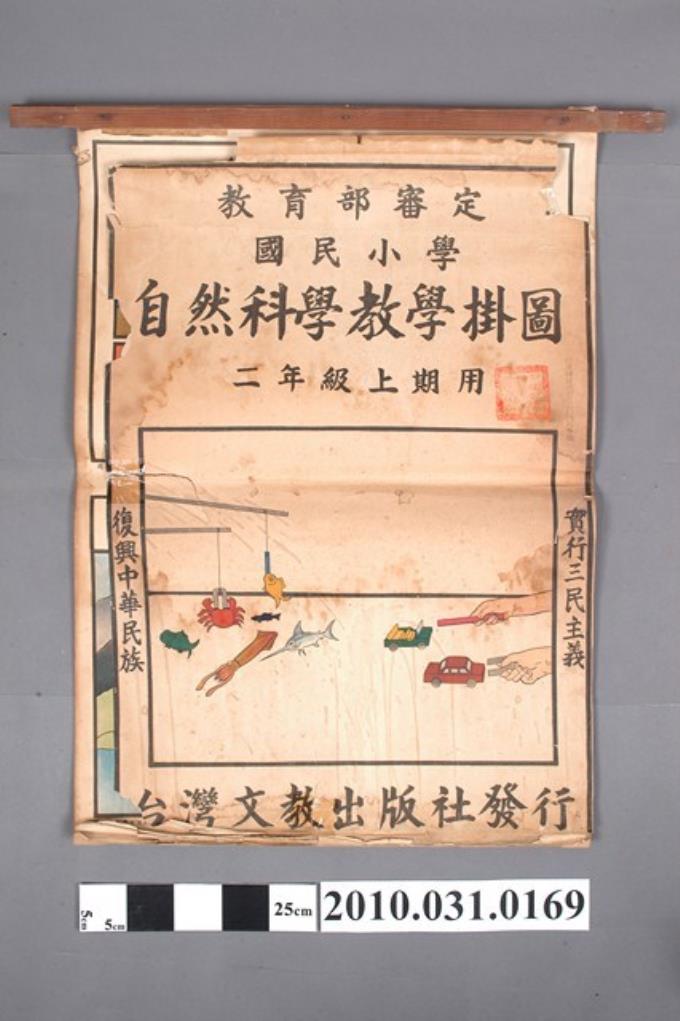 教育部審定
國民小學
自然科學教學掛圖
二年級上期用
實行三民主義
復興中華民族
台灣文教出版社發行
5cm
5cm
25cm
2010.031.0169